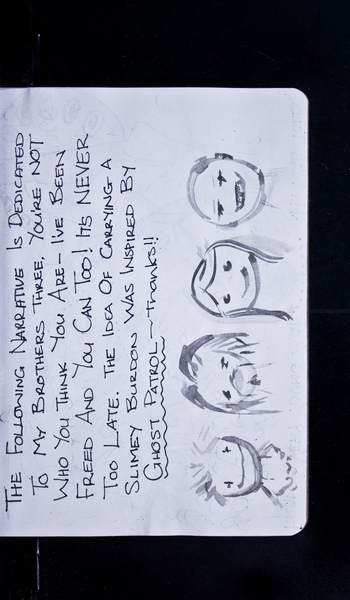 THE FOLLOWING NARRATIVE IS DEDICATED
TO MY BROTHERS THREE, YOU'RE NOT
WHO YOU THINK YOU ARE - I'VE BEEN
FREED AND YOU CAN TOO! ITS NEVER
TOO LATE. THE IDEA OF CARRYING A
SLIMEY BURDON WAS INSPIRED BY
GHOST PATROL - THANKS!!